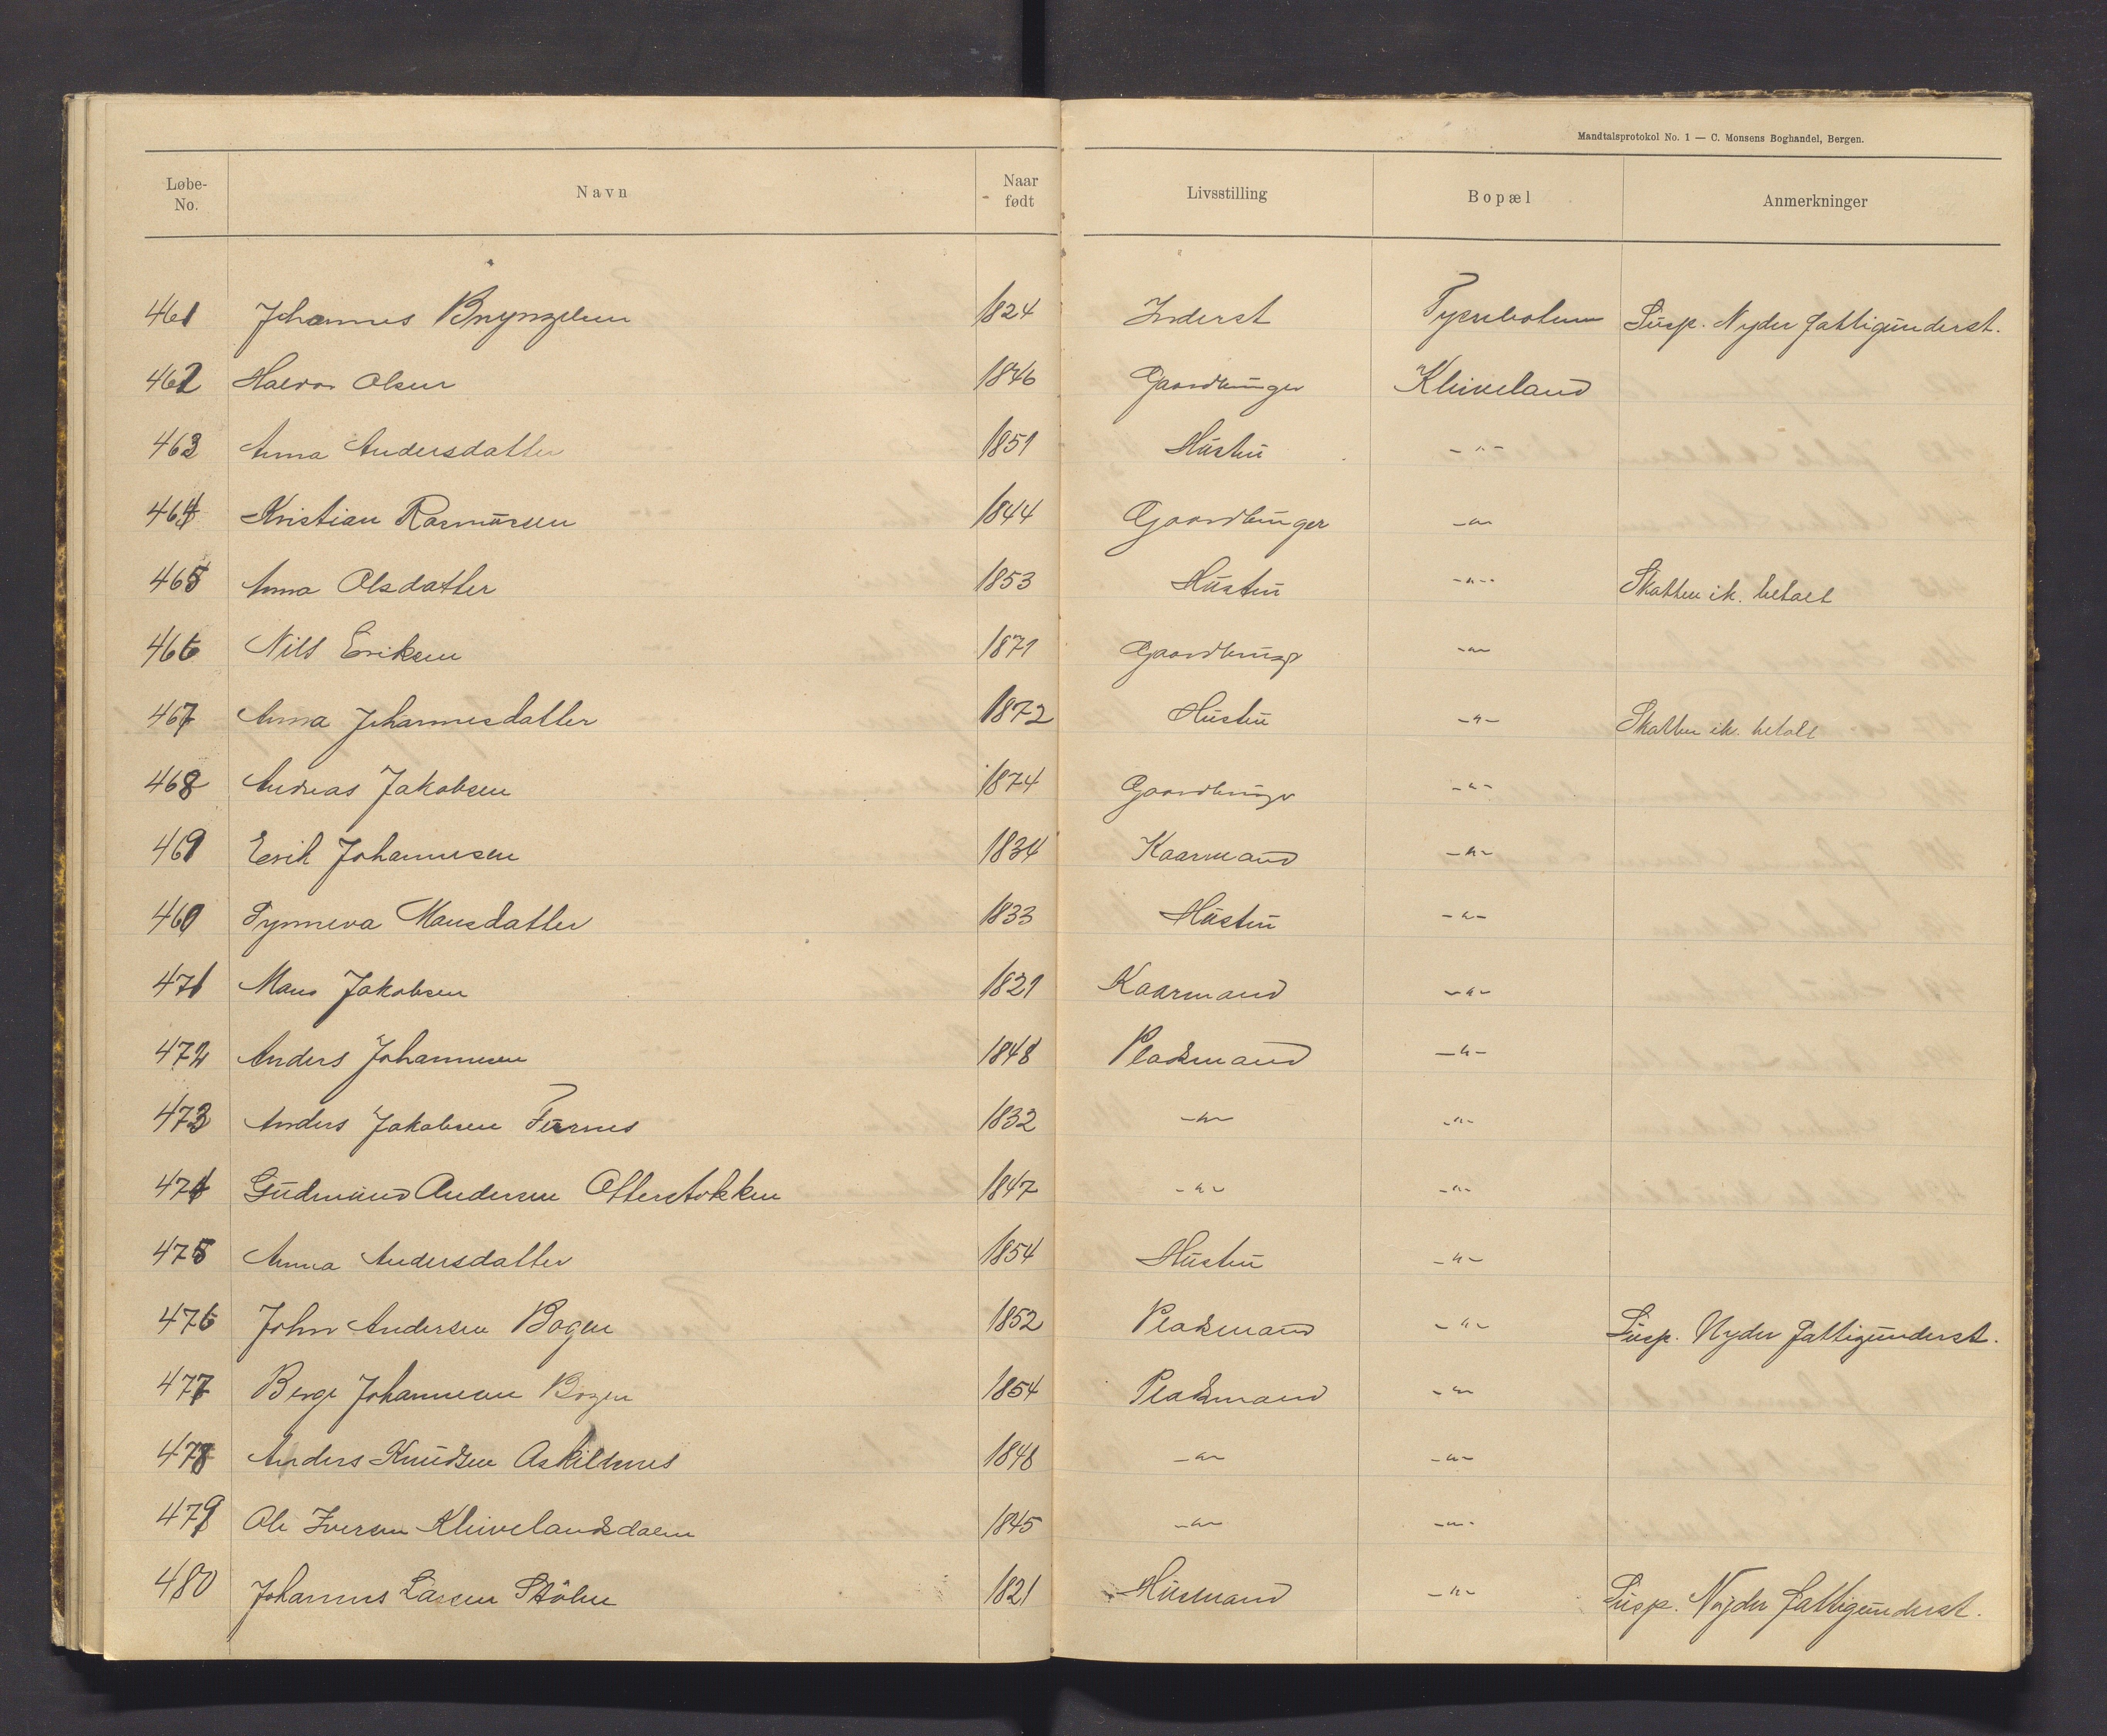 Mandtalsprotokol No. 1 — C. Monsens Boghandel, Bergen.
Løbe-No. Navn Naar født Livsstilling Bopæl Anmerkninger
461 Johannes Brynjelsen 1824 Inderst Susp. Nyder fattigunderst.
462 Halvor Olsen 1846 Gaardbruger Kleiveland
463 Anna Andersdatter 1851 Hustru -"-
464 Kristian Rasmussen 1844 Gaardbruger -"-
465 Anna Olsdatter 1853 Hustru -"- Skatten ik. betalt
466 Nils Eriksen 1871 Gaardbruger -"-
467 Anna Johannesdatter 1872 Hustru -"- Skatten ik. betalt
468 Andreas Jakobsen 1874 Gaardbruger -"-
469 Erik Johannesen 1834 Kaarmand -"-
460 Synneva Mansdatter 1833 Hustru -"-
471 Mans Jakobsen 1821 Kaarmand -"-
472 Anders Johannesen 1848 Pladsmand -"-
473 Anders Jakobsen Furnes 1832 -"- -"-
474 Gudmund Andersen Otterstokken 1847 -"- -"-
475 Anna Andersdatter 1854 Hustru -"-
476 John Andersen Bogen 1852 Pladsmand -"- Susp. Nyder fattigunderst.
477 Berge Johannesen Bogen 1854 Pladsmand -"-
478 Anders Knudsen Askildsnes 1848 -"- -"-
479 Ole Iversen Kleivelandsdalen 1845 -"- -"-
480 Johannes Larsen Stölen 1821 Husmand -"- Susp. Nyder fattigunderst.